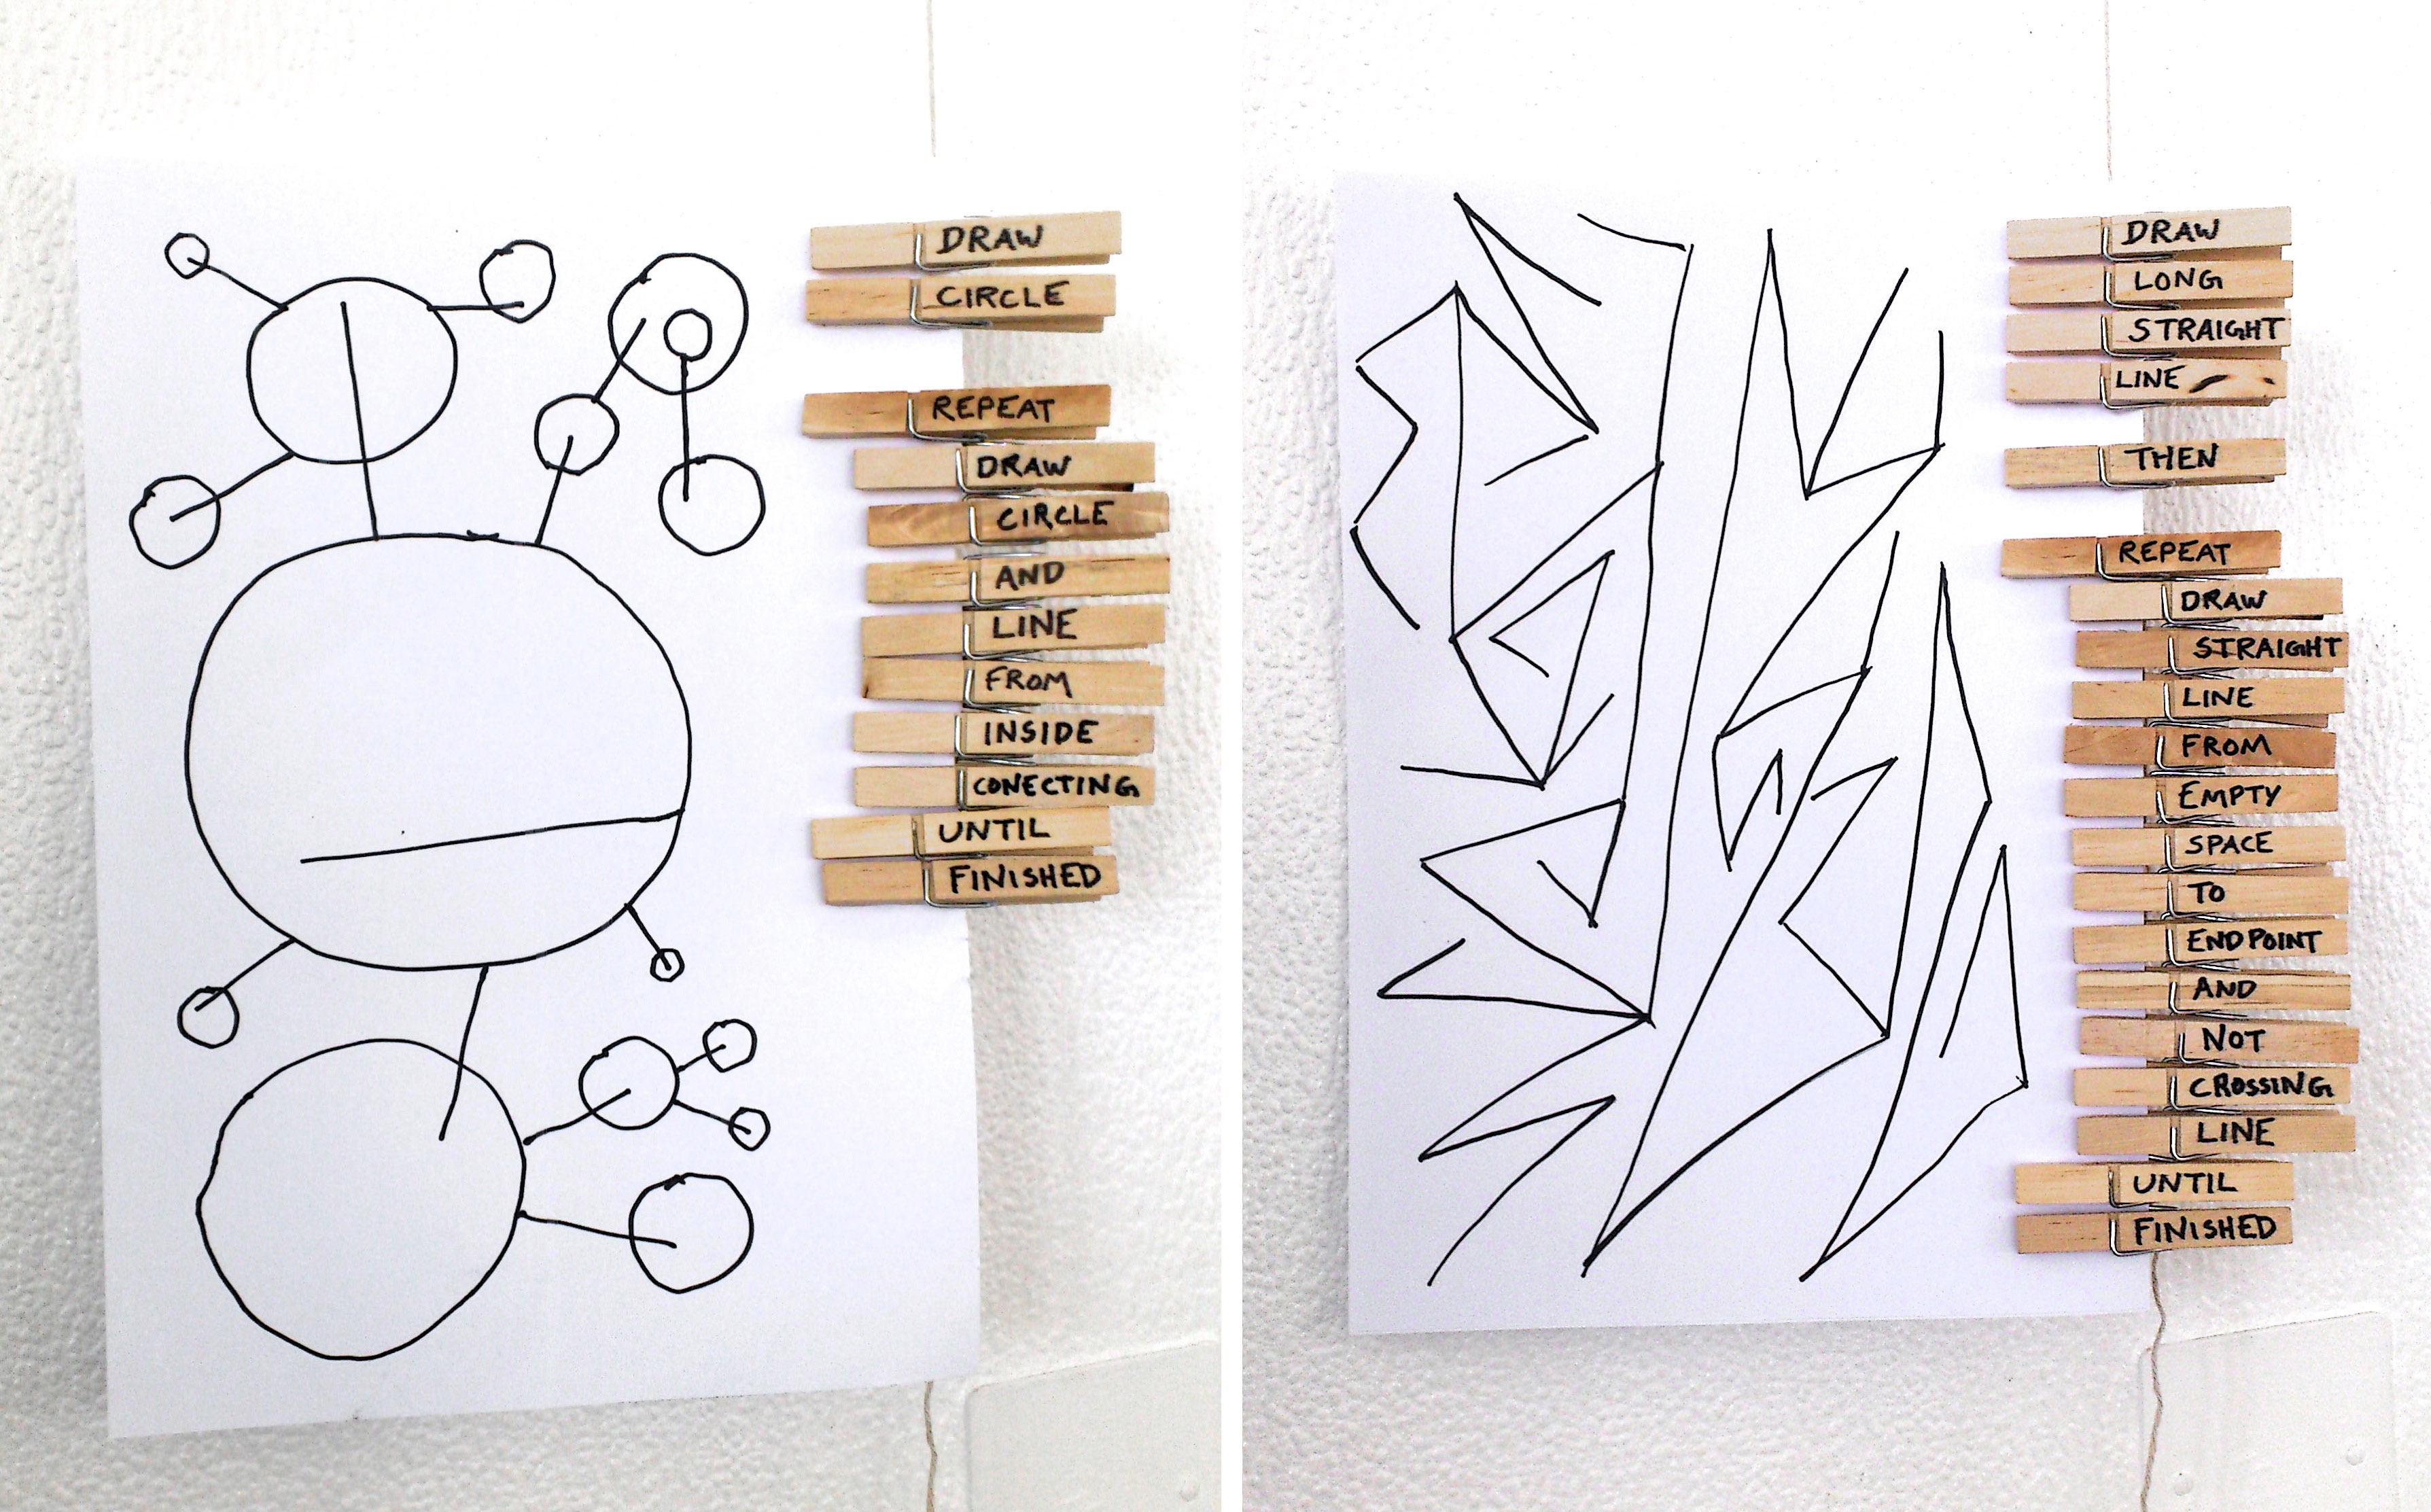 DRAW
CIRCLE
REPEAT
DRAW
CIRCLE
AND
LINE
FROM
INSIDE
CONECTING
UNTIL
FINISHED
DRAW
LONG
STRAIGHT
LINE
THEN
REPEAT
DRAW
STRAIGHT
LINE
FROM
EMPTY
SPACE
TO
ENDPOINT
AND
NOT
CROSSING
LINE
UNTIL
FINISHED